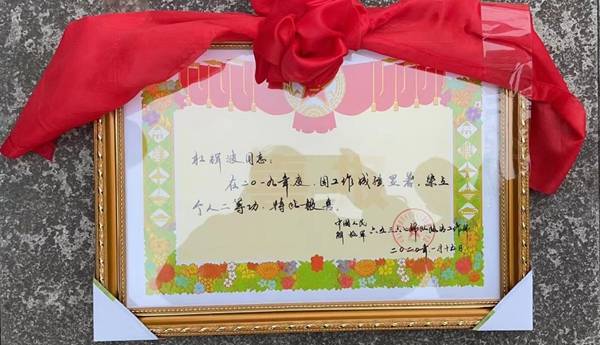 杜辉波同志:
在二〇一九年度,因工作成绩显著,荣立
个人二等功,特此报喜。
中国人民
解放军 六五三六八部队政治工作部
二〇二〇年一月十五日